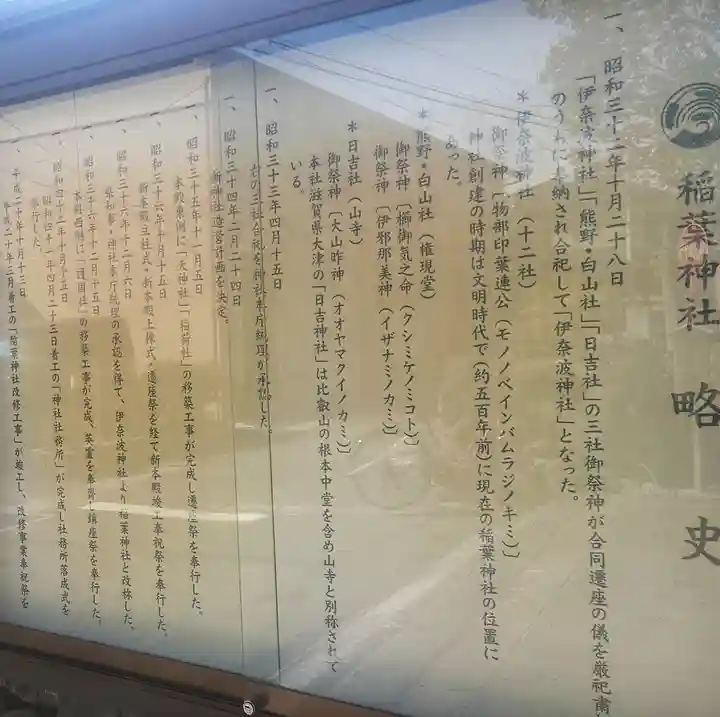 稲葉神社 略史
一、昭和三十二年十月二十八日
「伊奈波神社」「熊野・白山社」「日吉社」の三社御祭神が合同遷座の儀を厳祀粛
のうちに奉納され合祀して「伊奈波神社」となった。
＊伊奈波神社（十二社）
御祭神〔物部印葉連公（モノノベインバムラジノキミ）〕
神社創建の時期は文明時代で（約五百年前）に現在の稲葉神社の位置に
あった。
＊熊野・白山社（権現堂）
御祭神〔櫛御気之命（クシミケノミコト）〕
御祭神〔伊邪那美神（イザナミノカミ）〕
＊日吉社（山寺）
御祭神〔大山昨神（オオヤマクイノカミ）〕
本社滋賀県大津の「日吉神社」は比叡山の根本中堂を含め山寺と別称されて
いる。
一、昭和三十三年四月十五日
右の三社合祀を神社本庁統理が承認した。
一、昭和三十四年二月二十四日
新神社造営計画を決定。
一、昭和三十五年十一月五日
本殿東側に「天神社」「稲荷社」の移築工事が完成し遷座祭を奉行した。
一、昭和三十六年十月十五日
新本殿立柱式・新本殿上棟式・遷座祭を経て新本殿竣工奉祝祭を奉行した。
一、昭和三十六年十二月六日
県知事・神社本庁統理の承認を得て、伊奈波神社より稲葉神社と改称した。
一、昭和三十六年十二月十五日
本殿西側に「護国社」の移築工事が完成、英霊を奉斎し鎮座祭を奉行した。
一、昭和四十二年十月十五日
昭和四十一年四月二十三日着工の「神社社務所」が完成し社務所落成式を
奉行した。
一、平成二十年十月十三日
平成二十年三月着工の「稲葉神社改修工事」が竣工し、改修事業奉祝祭を